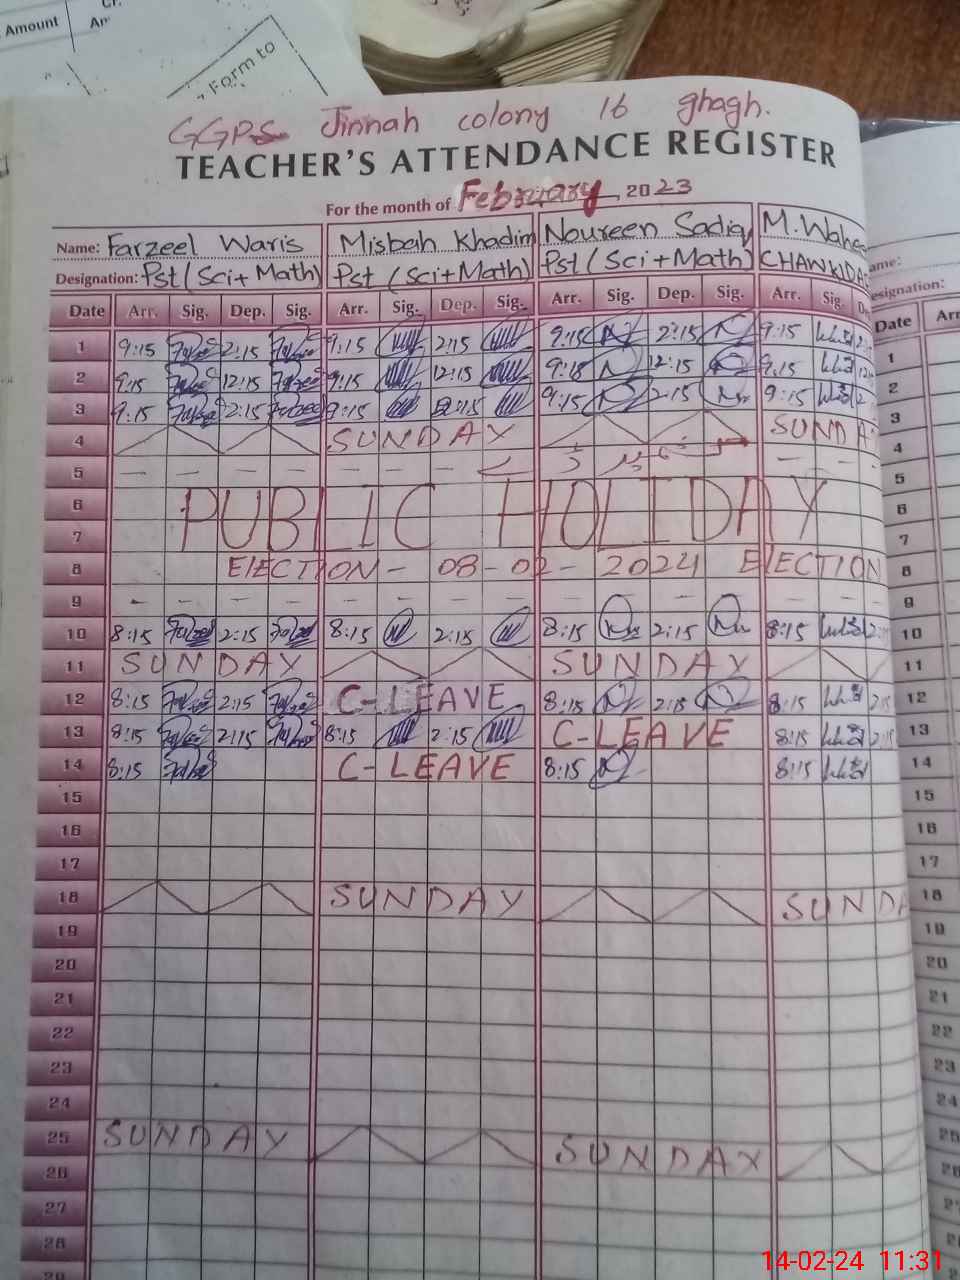 Amount
Form to
GGPS Jinnah colony 16 ghagh.
TEACHER'S ATTENDANCE REGISTER
For the month of February 2023
Name: Farzeel Waris Misbah Khadim Noureen Sadiq M.Wahee
Designation: Pst (Sci+Math) Pst (Sci+Math) Pst (Sci+Math) CHAWKIDA
Date Arr. Sig. Dep. Sig. Arr. Sig. Dep. Sig. Arr. Sig. Dep. Sig. Arr. Sig.
1 9:15 2:15 9:15 2:15 9:15 2:15 9:15
2 9:15 12:15 9:15 12:15 9:15 12:15 9:15
3 9:15 2:15 9:15 2:15 9:15 2:15 9:15
4 SUNDAY SUNDA
5
6 PUBLIC HOLIDAY
7
8 ELECTION - 08-02-2024 ELECTION
9
10 8:15 2:15 8:15 2:15 8:15 2:15 8:15
11 SUNDAY SUNDAY
12 8:15 2:15 C-LEAVE 8:15 2:15 8:15
13 8:15 2:15 8:15 2:15 C-LEAVE 8:15
14 8:15 C-LEAVE 8:15 8:15
15
16
17
18 SUNDAY SUNDA
19
20
21
22
23
24
25 SUNDAY SUNDAY
26
27
28
29
ame:
esignation:
Date Arr
1
2
3
4
5
6
7
8
9
10
11
12
13
14
15
16
17
18
19
20
21
22
23
24
25
26
14-02-24 11:31